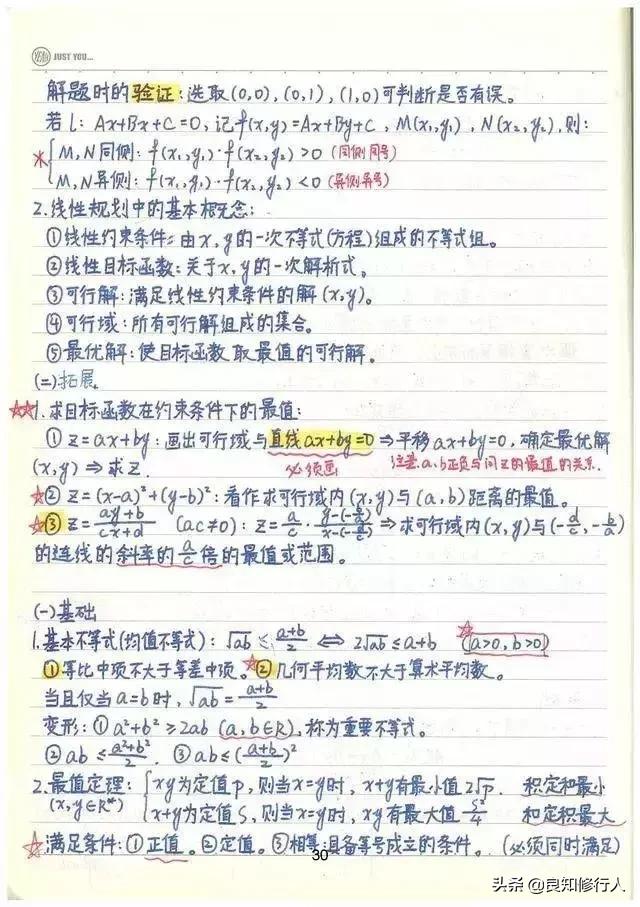 YEAH JUST YOU...
解题时的验证:选取(0,0),(0,1),(1,0)可判断是否有误。
若l: Ax+Bx+C=0,记f(x,y)=Ax+By+C, M(x₁,y₁), N(x₂,y₂),则:
* M,N同侧: f(x₁,y₁)·f(x₂,y₂)>0 (同侧同号)
M,N异侧: f(x₁,y₁)·f(x₂,y₂)<0 (异侧异号)
2.线性规划中的基本概念:
①线性约束条件:由x,y的一次不等式(方程)组成的不等式组。
②线性目标函数:关于x,y的一次解析式。
③可行解:满足线性约束条件的解(x,y)。
④可行域:所有可行解组成的集合。
⑤最优解:使目标函数取最值的可行解。
(二)拓展。
☆☆1.求目标函数在约束条件下的最值:
① z=ax+by:画出可行域与直线ax+by=0⇒平移ax+by=0,确定最优解
(x,y)⇒求z. 必须画 注意a,b正负与间z的最值的关系.
☆② z=(x-a)²+(y-b)²:看作求可行域内(x,y)与(a,b)距离的最值。
☆③ z=(ay+b)/(cx+d) (ac≠0): z=a/c·(y-(-b/a))/(x-(-d/c))⇒求可行域内(x,y)与(-d/c,-b/a)
的连线的斜率的a/c倍的最值或范围。
(一)基础
1.基本不等式(均值不等式): √ab≤(a+b)/2 ⇔ 2√ab≤a+b ☆(a>0,b>0)
①等比中项不大于等差中项。☆②几何平均数不大于算术平均数。
当且仅当a=b时,√ab=(a+b)/2
变形:①a²+b²≥2ab (a,b∈R),称为重要不等式。
②ab≤(a²+b²)/2. ③ab≤((a+b)/2)²
2.最值定理: xy为定值p,则当x=y时,x+y有最小值2√p. 积定和最小
(x,y∈R⁺) x+y为定值S,则当x=y时,xy有最大值S²/4 和定积最大
☆满足条件:①正值。②定值。③相等:具备等号成立的条件。(必须同时满足)
30
头条@良知修行人